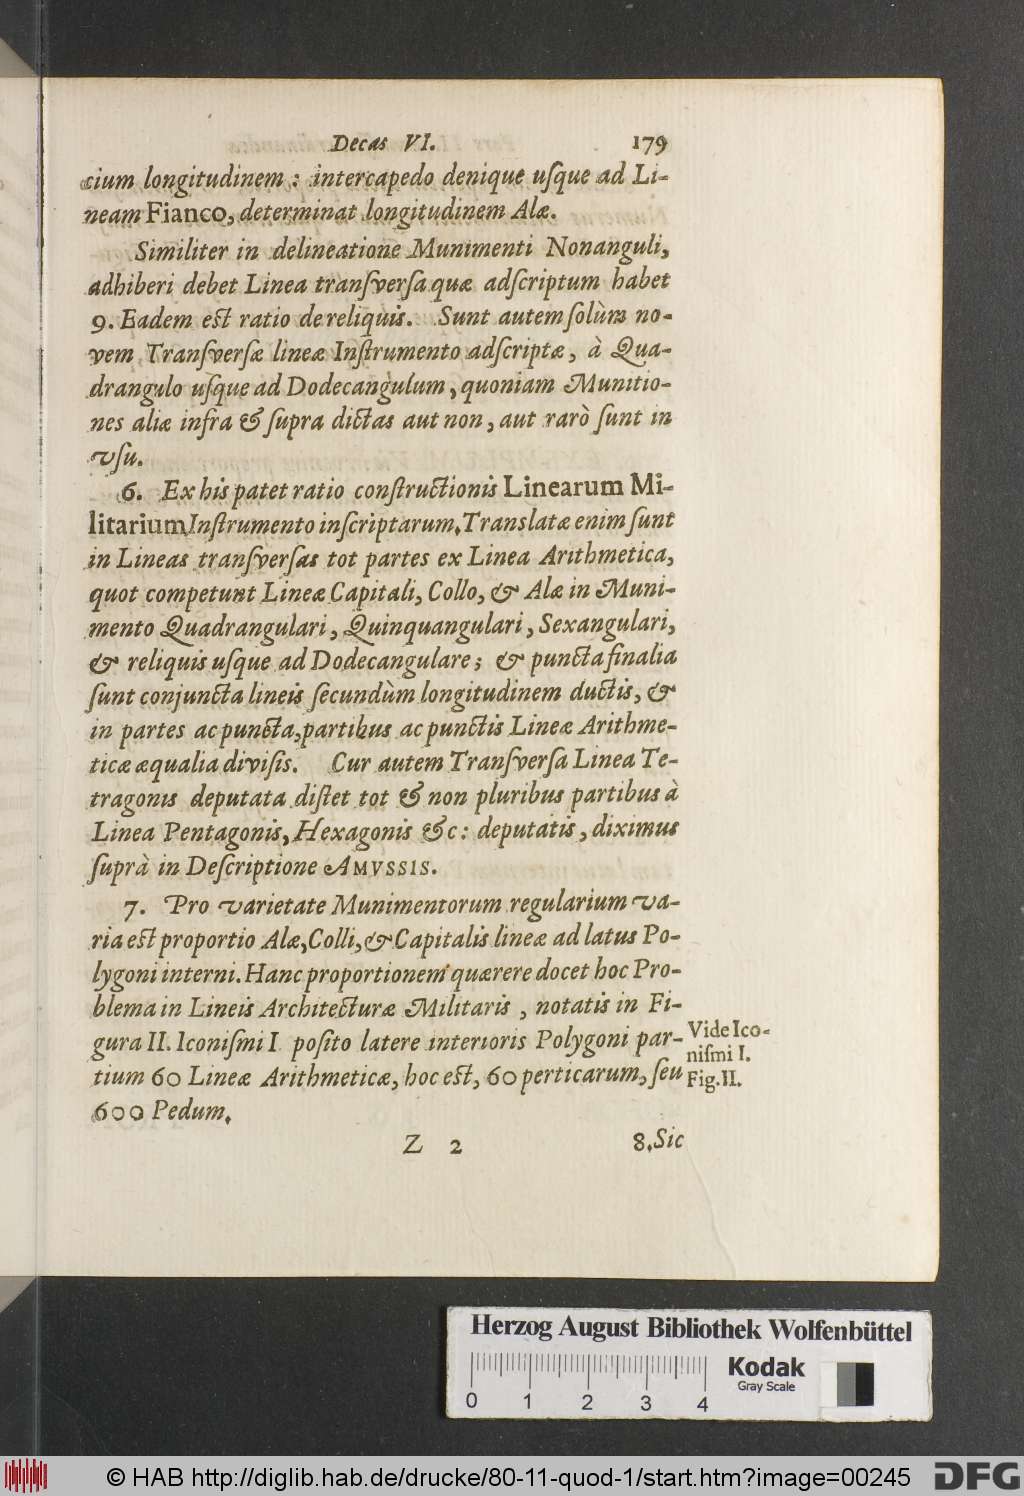 Decas VI. 179
cium longitudinem : intercapedo denique uſque ad Li-
neam Fianco, determinat longitudinem Alæ.
Similiter in delineatione Munimenti Nonanguli,
adhiberi debet Linea tranſverſa quæ adſcriptum habet
9. Eadem est ratio de reliquis. Sunt autem ſolùm no-
vem Tranſverſæ lineæ Inſtrumento adſcriptæ, à Qua-
drangulo uſque ad Dodecangulum, quoniam Munitio-
nes aliæ infra & ſupra dictas aut non, aut rarò ſunt in
vſu.
6. Ex his patet ratio conſtructionis Linearum Mi-
litarium Inſtrumento inſcriptarum. Translatæ enim ſunt
in Lineas tranſverſas tot partes ex Linea Arithmetica,
quot competunt Lineæ Capitali, Collo, & Alæ in Muni-
mento Quadrangulari, Quinquangulari, Sexangulari,
& reliquis uſque ad Dodecangulare; & puncta finalia
ſunt conjuncta lineis ſecundùm longitudinem ductis, &
in partes ac puncta, partibus ac punctis Lineæ Arithme-
ticæ æqualia diviſis. Cur autem Tranſverſa Linea Te-
tragonis deputata diſtet tot & non pluribus partibus à
Linea Pentagonis, Hexagonis &c: deputatis, diximus
ſuprà in Deſcriptione AMVSSIS.
7. Pro varietate Munimentorum regularium va-
ria est proportio Alæ, Colli, & Capitalis lineæ ad latus Po-
lygoni interni. Hanc proportionem quærere docet hoc Pro-
blema in Lineis Architecturæ Militaris, notatis in Fi-
gura II. Iconiſmi I poſito latere interioris Polygoni par-
tium 60 Lineæ Arithmeticæ, hoc est, 60 perticarum, ſeu
600 Pedum.
Vide Ico-
niſmi I.
Fig. II.
Z 2 8. Sic
Herzog August Bibliothek Wolfenbüttel
0 1 2 3 4
Kodak
Gray Scale
© HAB http://diglib.hab.de/drucke/80-11-quod-1/start.htm?image=00245
DFG